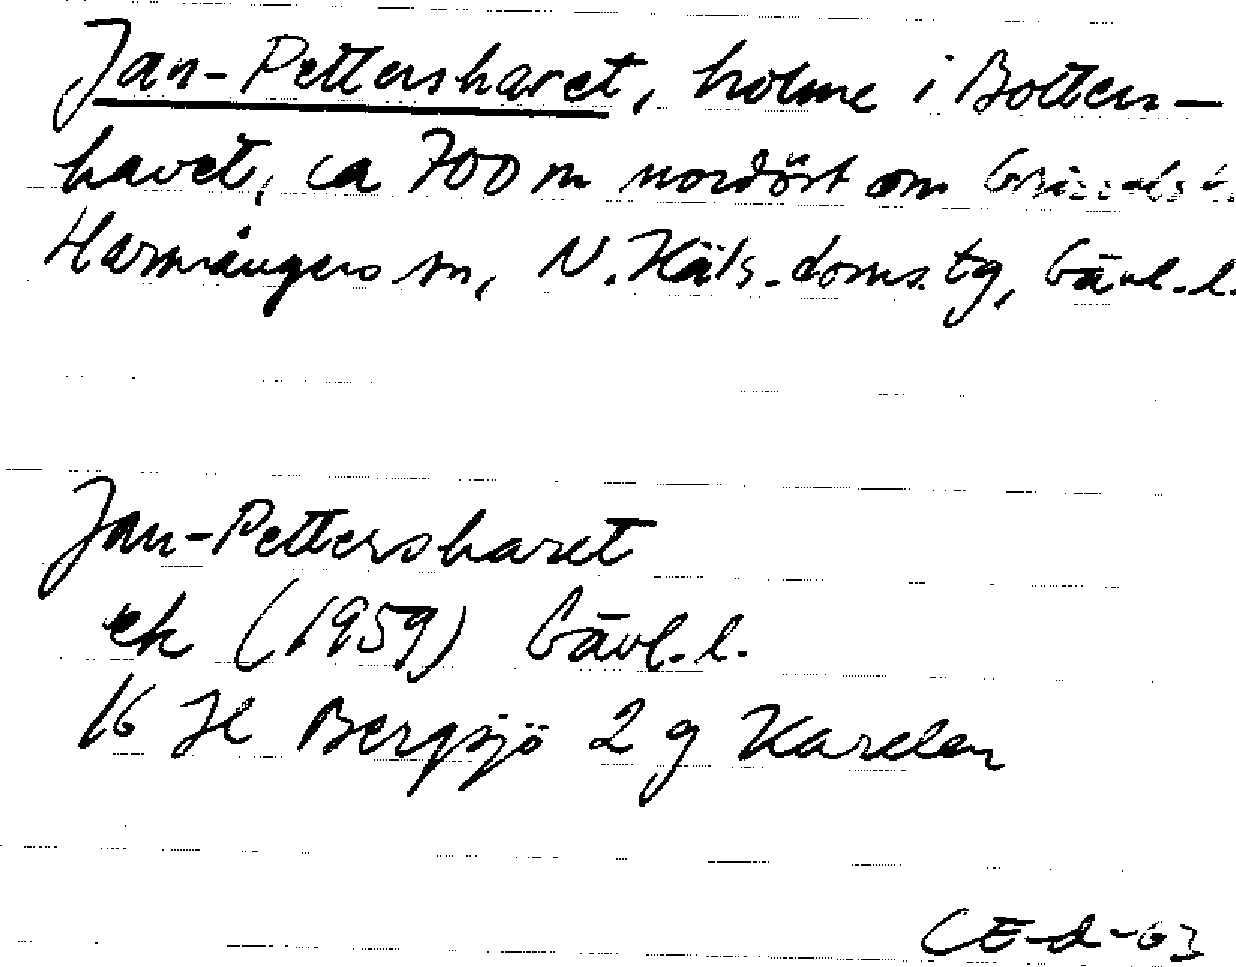 Jan-Pettersharet, holme i Botten-
havet, ca 700 m nordöst om
Harmångers sn, N. Häls. doms. tg, Gävl. l.
Jan-Pettersharet
ek (1959) Gävl. l.
16 H Bergsjö 2 g
CE-d-63